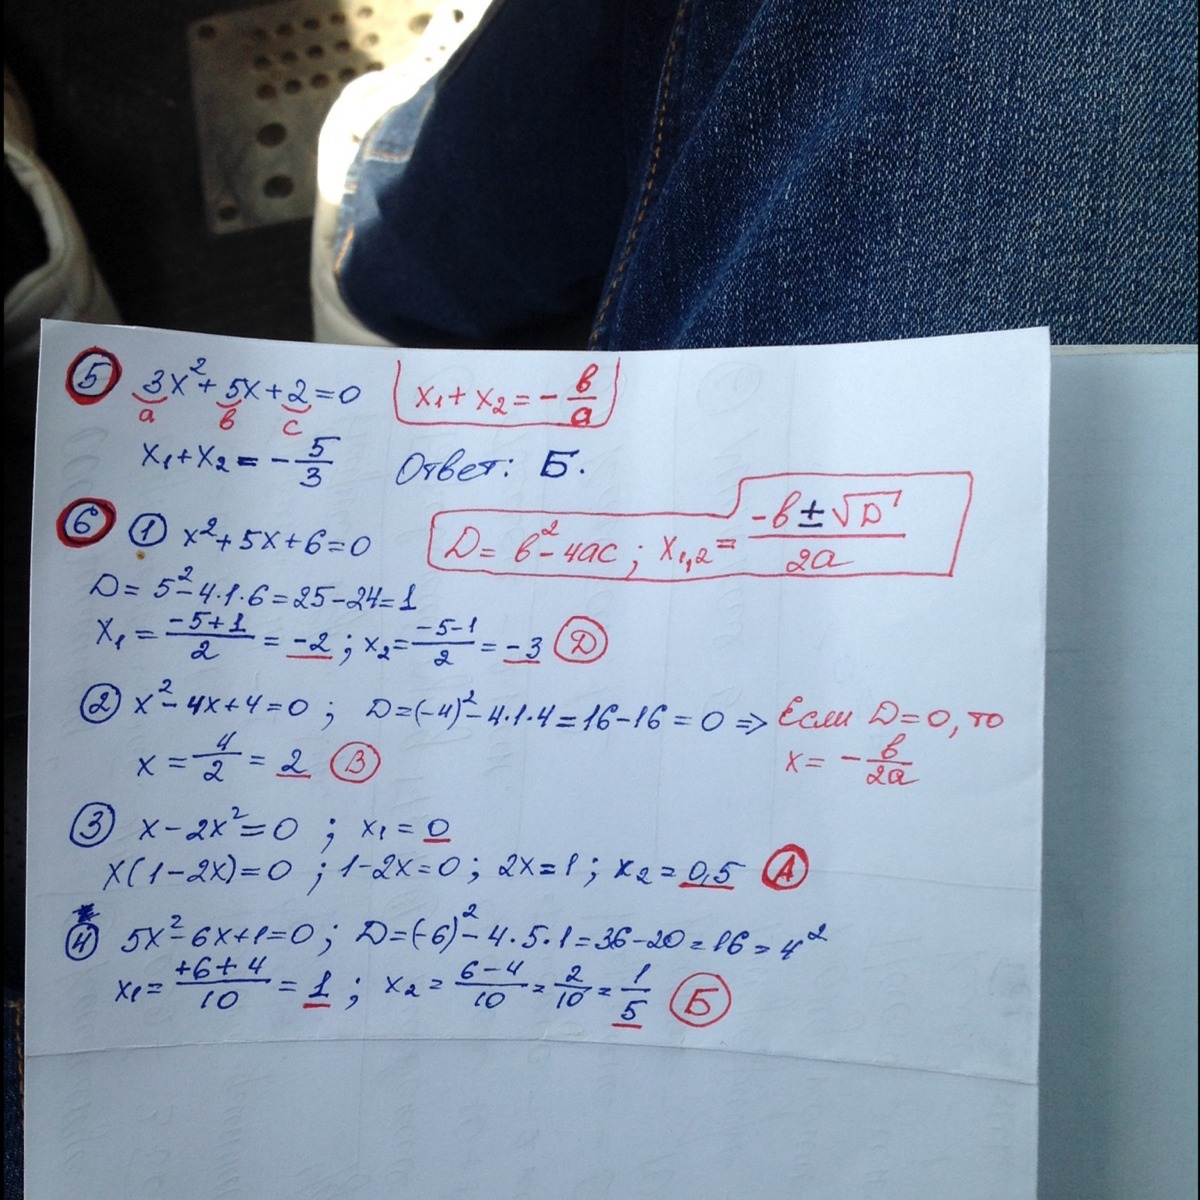 5 3x² + 5x + 2 = 0 x₁ + x₂ = - в/а
а в с
x₁ + x₂ = - 5/3 Ответ: Б.
6 1 x² + 5x + 6 = 0 D = в² - 4ас ; x₁,₂ = -в ± √D / 2а
D = 5² - 4·1·6 = 25 - 24 = 1
x₁ = -5+1/2 = -2 ; x₂ = -5-1/2 = -3 Д
2 x² - 4x + 4 = 0 ; D = (-4)² - 4·1·4 = 16 - 16 = 0 => Если D = 0, то
x = 4/2 = 2 В x = - в/2а
3 x - 2x² = 0 ; x₁ = 0
x(1 - 2x) = 0 ; 1 - 2x = 0 ; 2x = 1 ; x₂ = 0,5 А
4 5x² - 6x + 1 = 0 ; D = (-6)² - 4·5·1 = 36 - 20 = 16 = 4²
x₁ = +6+4/10 = 1 ; x₂ = 6-4/10 = 2/10 = 1/5 Б